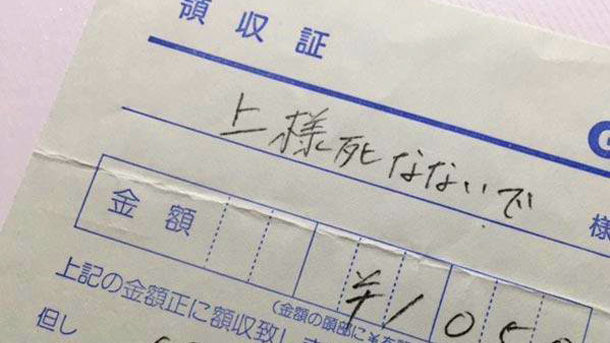 領収証
上様死なないで 様
金額 ¥1050
(金額の頭部に¥を
上記の金額正に領収致しま
但し